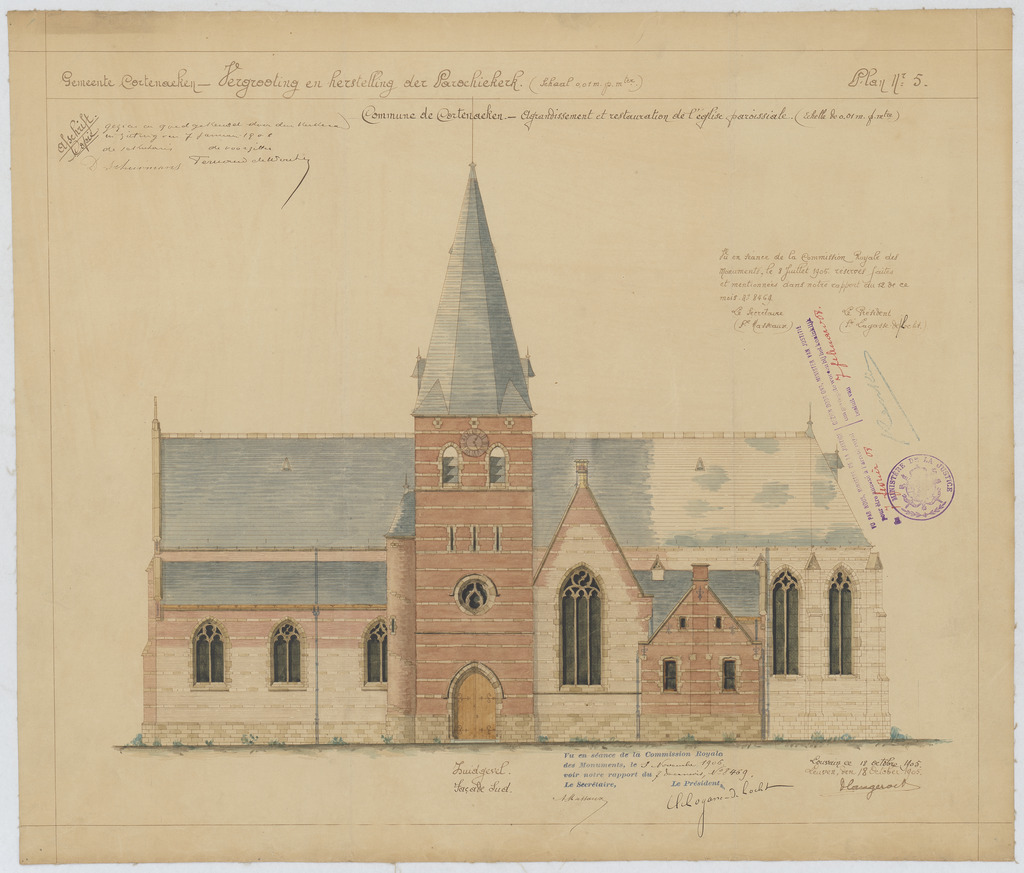 Gemeente Cortenaeken — Vergrooting en herstelling der Parochiekerk. (Schaal 0.01 m. p. mter)
Plan Nr 5.
Commune de Cortenaeken. — Agrandissement et restauration de l'église paroissiale. (Echelle de 0,01 m. p. mètre)
Afschrift
gezien en goedgekeurd door den
in zitting van 7 Januari 1908
de secretaris de voorzitter
Vu en séance de la Commission Royale des
Monuments, le 8 Juillet 1905. reserves faites
et mentionnées dans notre rapport du 12 de ce
mois. No 8468
Le Secrétaire Le Président
(Sé Massaux) (Sé Lagasse de Locht.)
MINISTÈRE DE LA JUSTICE
Zuidgevel.
Façade Sud.
Vu en séance de la Commission Royale
des Monuments, le 3 Novembre 1906
voir notre rapport du
Le Secrétaire, Le Président,
A Massaux Ch Lagasse de Locht
Louvain, ce 18 octobre 1905.
Leuven, den 18 October 1905.
V Langerock